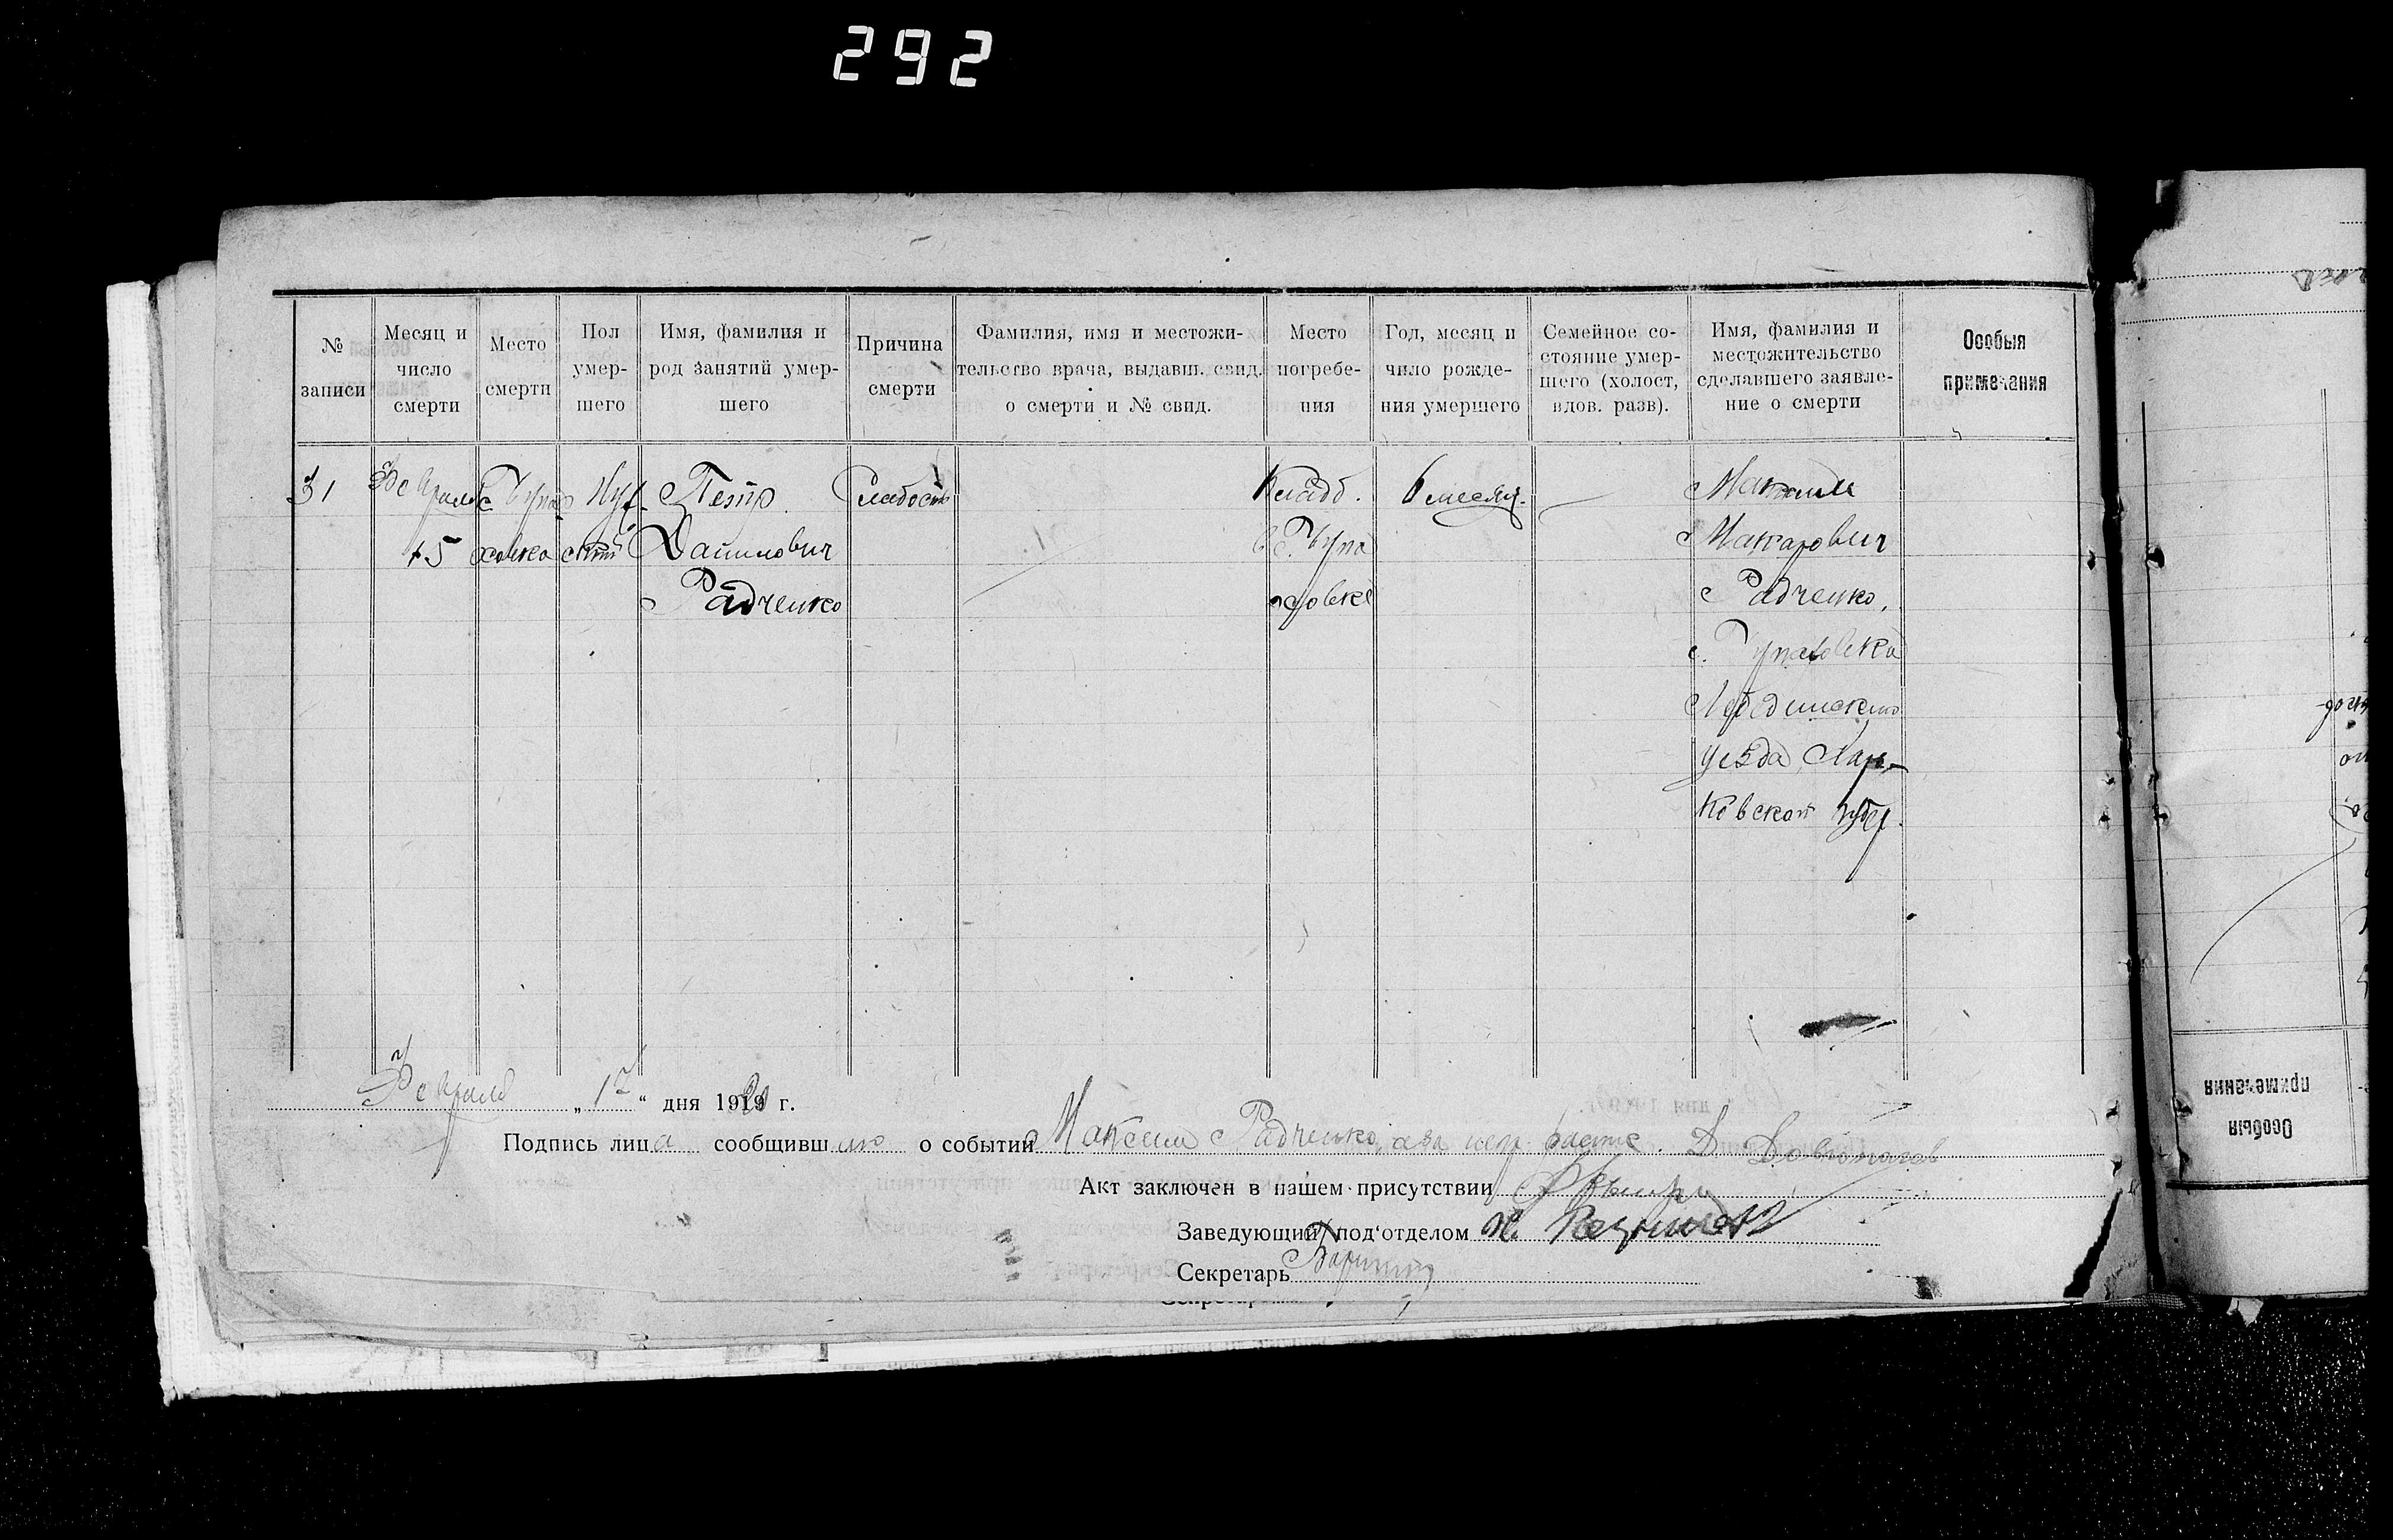 292
№ записи
Месяц и число смерти
Место смерти
Пол умер-шего
Имя, фамилия и род занятий умер-шего
Причина смерти
Фамилия, имя и местожи-тельство врача, выдавш. свид. о смерти и № свид.
Место погребе-ния
Год, месяц и чило рожде-ния умершего
Семейное со-стояние умер-шего (холост, вдов. разв).
Имя, фамилия и местожительство сделавшего заявле-ние о смерти
Особыя примечания
31
Февраля
15
с. Чупа
ховка
Муж
ской
Петр
Данилович
Радченко
Слабость
Кладб.
в с. Чупа
ховке
6 месяц.
Максим
Макарович
Радченко,
с. Чупаховка
Лебединского
уезда, Харь-
ковской губер.
Февраля „17“ дня 1920 г.
Подпись лица сообщившаго о событии Максим Радченко, а за негр.
Акт заключен в нашем присутствии
Заведующий под‘отделом
Секретарь
примечания
Особыя